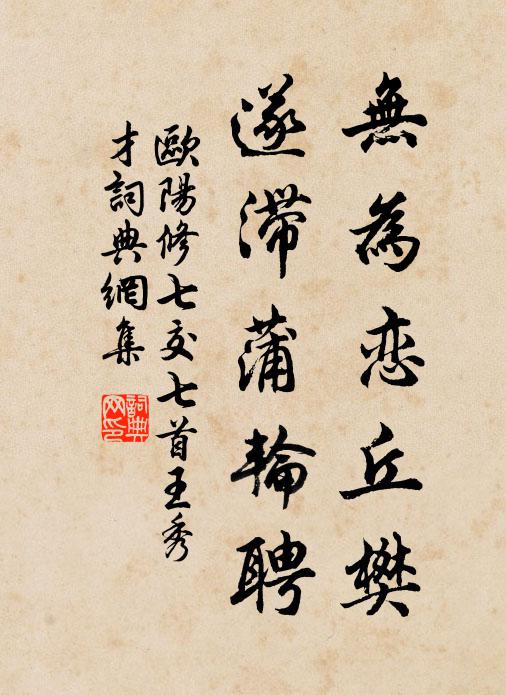 無為恋丘樊
遂滯蒲輪聘
歐陽修七交七首王秀
才詞典網集
詞典
网印